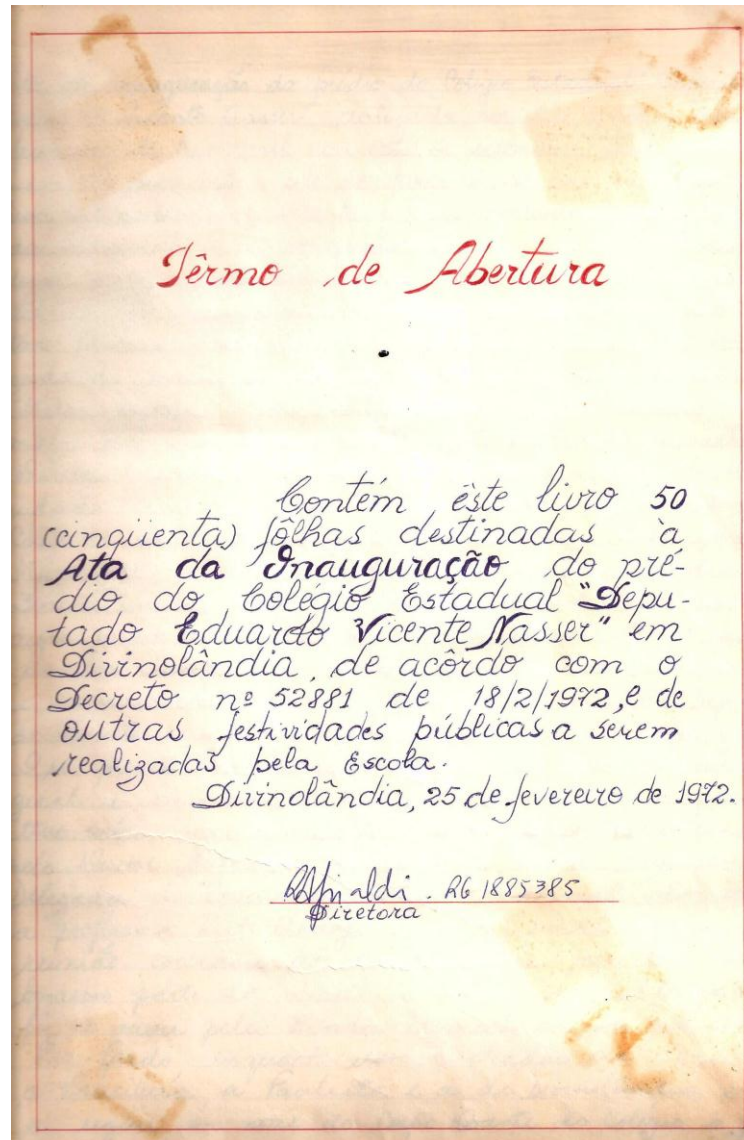 Têrmo de Abertura
Contém êste livro 50
(cinqüenta) fôlhas destinadas à
Ata da Inauguração do pré-
dio do Colégio Estadual "Depu-
tado Eduardo Vicente Nasser" em
Divinolândia, de acôrdo com o
Decreto nº 52881 de 18/2/1972, e de
outras festividades públicas a serem
realizadas pela Escola.
Divinolândia, 25 de fevereiro de 1972.
RG 1885385
Diretora